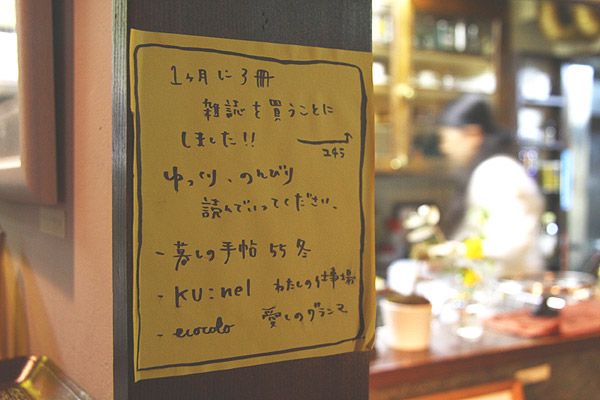 1ヶ月に3冊
雑誌を買うことに
しました!!
ゆっくり、のんびり
読んでいってください、
- 暮しの手帖 55 冬
- KU:nel わたしの仕事場
- ecocolo 愛しのグランマ